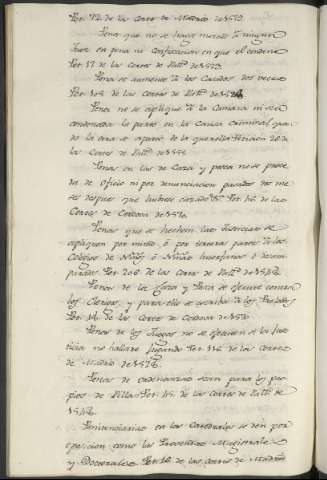 Pet. 72. de las Cortes de Madrid de 1573.
Penas que no se hagan merced à ningun
Juez en pena ni confiscacion en que el condene
Pet. 17. de las Cortes de Vall.d de 1523.
Penas se aumente à los Casados dos veces
Pet. 105 de las Cortes de Vall.d de 1548.
Pena no se aplique à la Camara ni sea
condenada la parte en la Causa Criminal quan
do la otra se aparta de la querella Peticion 20 de
las Cortes de Vall.d de 1555.
Penas en las de Caza y pesca no se proce
da de Oficio ni por denunciacion pasados dos me
ses despues que hubiere cazado &.a Pet. 46. de las
Cortes de Cordova de 1570.
Penas que se hechen las Justicias se
apliquen por mitad ó por terceras partes à los
Colegios de Niños ó Niñas huerfanas ó desam
paradas Pet. 206 de las Cortes de Vall.d de 1548.
Penas de la Caza y Pesca se execute contra
los Clerigos, y para ello se escriba à los Prelados
Pet. 14. de las Cortes de Cordova de 1570
Penas de los Juegos no se executen si la Jus
ticia no hallare jugando Pet. 116 de las Cortes
de Madrid de 1528.
Penas de ordenanzas sean para los pro
pios de Villas Pet. 115. de las Cortes de Vall.d de
1548.
Penitenciarias en las Catedrales se den por
oposicion como las Prevendas Magistrales
y Doctorales Pet. de las Cortes de Madrid